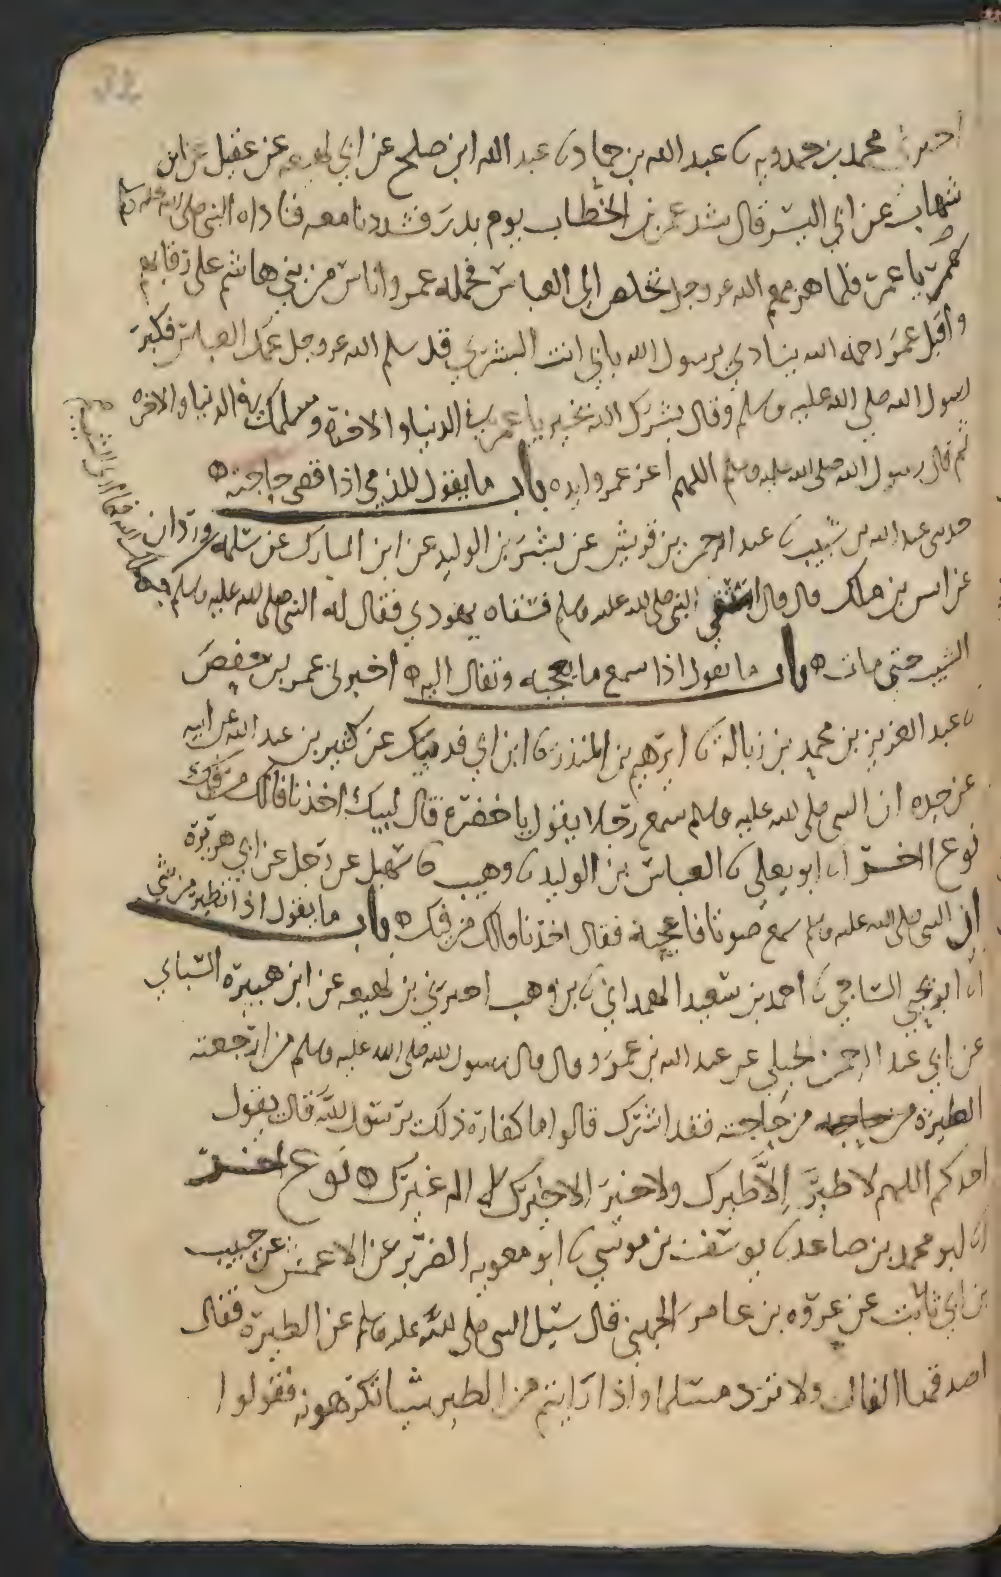 اخبرنا محمد بن حمدويه ثنا عبد الله بن حماد ثنا عبد الله ابن صلح عن ابي لهيعه عن عقيل عن ابن
شهاب عن ابي اليسر قال شد عمر بن الخطاب يوم بدر فشددنا معه فناداه النبي صلى الله عليه وسلم
يا عمر فلما هزمهم الله عز وجل تخلص الى العباس فحمله عمر واناس من بني هاشم على رقابهم
واقبل عمر رحمه الله ينادي يرسول الله بابي انت البشرى قد سلم الله عز وجل عمك العباس فكبر
رسول الله صلى الله عليه وسلم وقال بشرك الله بخير يا عمر في الدنيا والاخرة وسلمك في الدنيا والاخره
ثم قال رسول الله صلى الله عليه وسلم اللهم اعز عمر وايده باب ما يقول للذمي اذا قضى حاجته
حدثني عبد الله بن شبيب ثنا عبد الرحمن بن قريش عن بشر بن الوليد عن ابن المبارك عن سلمه وردان
عن انس بن ملك قال قال استسقى النبي صلى الله عليه وسلم فسقاه يهودي فقال له النبي صلى الله عليه وسلم
الشيب حتى مات باب ما يقول اذا سمع ما يعجبه وتفال اليه اخبرني عمر بن حفص
ثنا عبد العزيز بن محمد بن زبالة ثنا ابرهيم بن المنذر ثنا ابن ابي فديك عن كثير بن عبد الله عن ابيه
عن جده ان النبي صلى الله عليه وسلم سمع رجلا يقول يا خضرة قال لبيك اخذنا فالك من فيك
نوع اخر انا ابو يعلى ثنا العباس بن الوليد ثنا وهيب ثنا سهيل عن رجل عن ابي هريرة
ان النبي صلى الله عليه وسلم سمع صوتا فاعجبه فقال اخذنا فالك من فيك باب ما يقول اذا تطير من شي
انا ابو يحيى الساجي ثنا احمد بن سعيد الهمداني ثنا بن وهب اخبرني بن لهيعه عن ابن هبيرة السباي
عن ابي عبد الرحمن الحبلي عن عبد الله بن عمرو قال قال رسول الله صلى الله عليه وسلم من ارجعته
الطيرة من حاجته فقد اشرك قالوا ما كفارة ذلك يرسول الله قال يقول
احدكم اللهم لا طير الا طيرك ولا خير الا خيرك ولا اله غيرك نوع اخر
انا ابو محمد بن صاعد ثنا يوسف بن موسى ثنا ابو معويه الضرير عن الاعمش عن حبيب
بن ابي ثابت عن عروه بن عامر الجهني قال سئل النبي صلى الله عليه وسلم عن الطيرة فقال
اصدقها الفال ولا ترد مسلما واذا رايتم من الطير شيا تكرهونه فقولوا